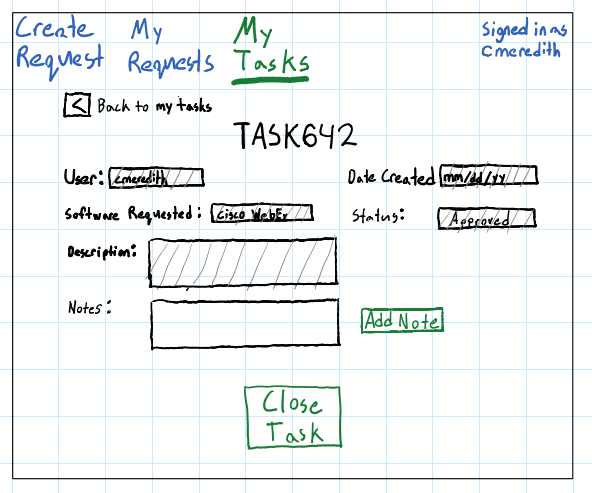 Create Request
My Requests
My Tasks
Signed in as cmeredith
< Back to my tasks
TASK642
User: cmeredith
Date Created mm/dd/yy
Software Requested: Cisco WebEx
Status: Approved
Description:
Notes:
Add Note
Close
Task